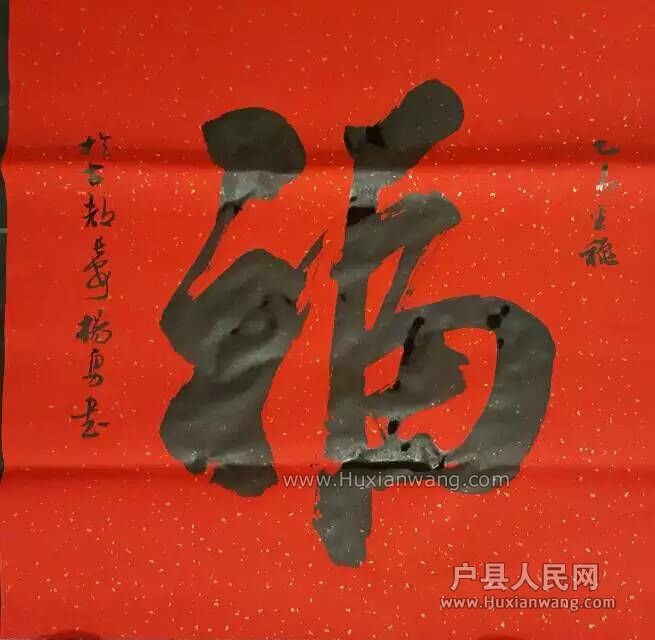 福
乙未 穐
於古都長安楊勇書
www.Huxianwang.com
户县人民网
www.Huxianwang.com